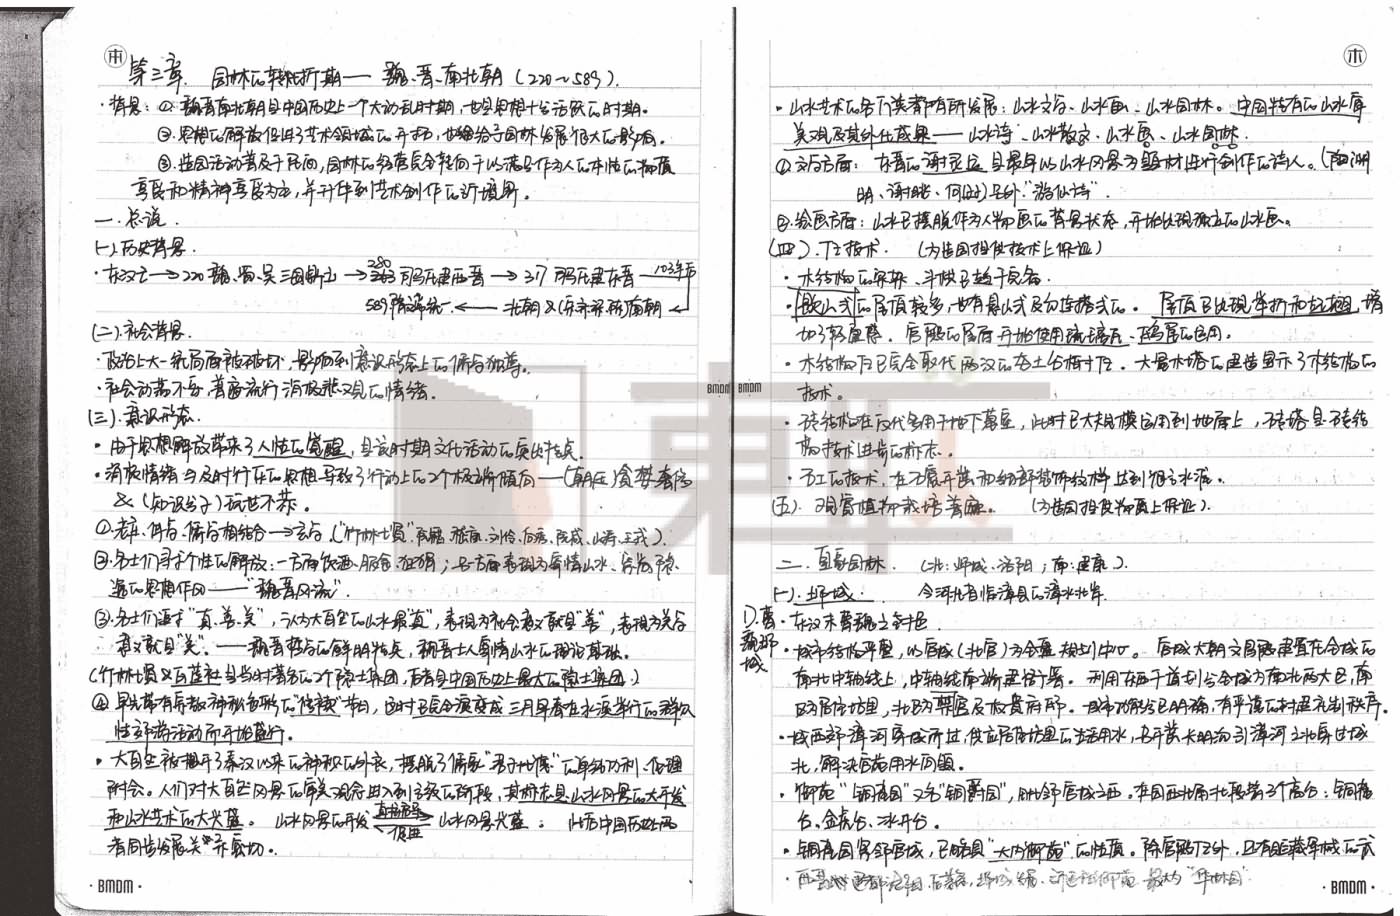 第三章. 园林的转折期—— 魏、晋、南北朝（220～589）.
·背景：①.魏晋南北朝是中国历史上一个大动乱时期，也是思想十分活跃的时期。
②.思想的解放促进了艺术领域的开拓，也给予园林发展很大的影响。
③.造园活动普及于民间，园林的经营完全转向于以满足作为人的本性的物质
享受和精神享受为主，并升华到艺术创作的新境界。
一.总说.
(一).历史背景.
·东汉亡→220 魏、蜀、吴三国鼎立→ 280 司马氏建西晋→317 司马氏建东晋 103年后
589隋统一.←北朝&(宋齐梁陈)南朝←
(二).社会背景.
·政治上大一统局面被破坏，影响到意识形态上的儒学独尊。
·社会动荡不安，普遍流行消极悲观的情绪。
(三).意识形态.
·由于思想解放带来了人性的觉醒，是该时期文化活动的突出特点.
·消极情绪与及时行乐的思想导致了行动上的2个极端倾向——(朝廷)贪婪奢侈
&(知识分子)玩世不恭。
①老庄、佛学、儒学相结合→玄学.(“竹林七贤”阮籍.嵇康.刘伶.向秀.阮咸.山涛.王戎).
②名士们寻求个性的解放：一方面饮酒、服食、狂狷；另一方面表现为寄情山水、崇尚隐
逸的思想作风——“魏晋风流”.
③.名士们追求“真、善、美”，认为大自然的山水最“真”，表现为社会意义就是“善”，表现为美学
意义就是“美”.——魏晋哲学的鲜明特点，魏晋士人寄情山水的理论基础.
(竹林七贤&白莲社是当时著名的2个隐士集团，后者是中国历史上最大的隐士集团.)
④.早先带有宗教神秘色彩的“修禊”节日，这时已完全演变成三月早春在水滨举行的群众
性郊游活动而开始盛行.
·大自然被揭开了秦汉以来的神秘的外衣，摆脱了儒家“君子比德”的单纯功利、伦理
附会。人们对大自然风景的审美观念进入到高级的阶段，其标志是山水风景的大开发
和山水艺术的大兴盛。 山水风景的开发 直接影响 山水风景兴盛； 此后中国历史两
促进
者同步发展关系密切.
·山水艺术的各门类都有所发展：山水文学、山水画、山水园林。中国特有的山水审
美观及其外化成果——山水诗、山水散文、山水画、山水园林.
①文学方面：东晋的谢灵运是最早以山水风景为题材进行创作的诗人。(陶渊
明、谢朓、何逊)另外“游仙诗”.
②.绘画方面：山水已摆脱作为人物画的背景状态，开始出现独立的山水画。
(四).工程技术. (为造园提供技术上保证)
·木结构的梁架、斗栱已趋于完备.
·歇山式的屋顶较多，也有悬山式及勾连搭式的。 屋顶已出现举折和起翘，增
加了轻盈感. 宫殿的屋面开始使用琉璃瓦、鸱尾的运用。
·木结构已完全取代两汉的夯土台榭 大量木塔的建造显示了木结构的
技术。
·砖结构在汉代多用于地下墓室，此时已大规模运用到地面上，砖塔是砖结
构技术进步的标志.
·石工的技术，在石窟开凿和细部装饰纹样上达到很高水准.
(五).观赏植物栽培普遍。 (为造园提供物质上保证).
二.皇家园林. (北：邺城、洛阳；南：建康).
(一).邺城. 今河北省临漳县的漳水北岸.
1).曹魏邺城
·在汉末曹魏之封邑.
·城市结构严整，以宫城(北宫)为全盘规划中心。宫城大朝文昌殿建置在全城的
南北中轴线上，中轴线南端建衙署。利用东西干道划分全城为南北两大区，南
区为居住坊里，北区为禁苑及权贵府邸。城市功能分区明确，有严谨的封建礼制秩序.
·城西郊漳河穿城而过，供应居住坊里的生活用水，另开凿长明沟引漳河之水穿过城
北，解决宫苑用水问题。
·御苑“铜雀园”又名“铜爵园”，毗邻宫城之西。在园西北隅北段筑了3个高台：铜雀
台、金虎台、冰井台。
·铜雀园紧邻宫城，已略具“大内御苑”的性质。除宫殿之外，且有储藏军械的武